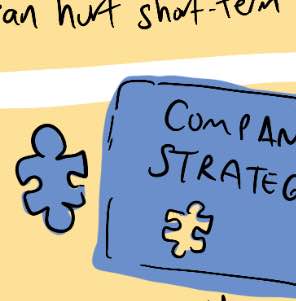 can hurt short-term
COMPAN
STRATEG